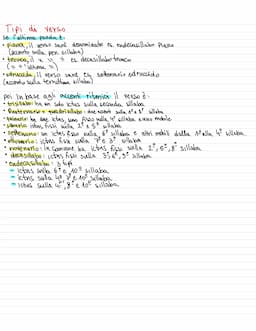 Tipi da verso
se l'ultima parola è:
• piana, il verso sarà denominato es. endecasillabo piano
(accento sulla pen. sillaba)
• tronca, il x y = es. decasillabo tronco
(= = ultima =)
• sdrucciola, il verso sarà es. settenario sdrucciolo
(accento sulla terzultima sillaba)
poi in base agli accenti ritmici il verso è:
• trisillabo: ha un solo ictus sulla seconda sillaba
• quaternario = quadrisillabo: due accenti sulla 1° e 3° sillaba
• ha due ictus, uno fisso sulla 4° sillaba e uno mobile
• senario: ictus fissi sulla 2° e 5° sillaba
• settenario: un ictus fisso sulla 6° sillaba e altri mobili dalla 1° alla 4° sillaba
• ottonario: ictus fissi sulla 7° e 3° sillaba
• novenario: in comune ha ictus fissi sulla 2°, 5°, 8° sillaba
• decasillabo: ictus fissi sulla 3°, 6°, 9° sillaba
• endecasillabo: 3 tipi
→ ictus sulla 6° e 10° sillaba
→ ictus sulla 4°, 7° e 10° sillaba
→ ictus sulla 4°, 8° e 10° sillaba